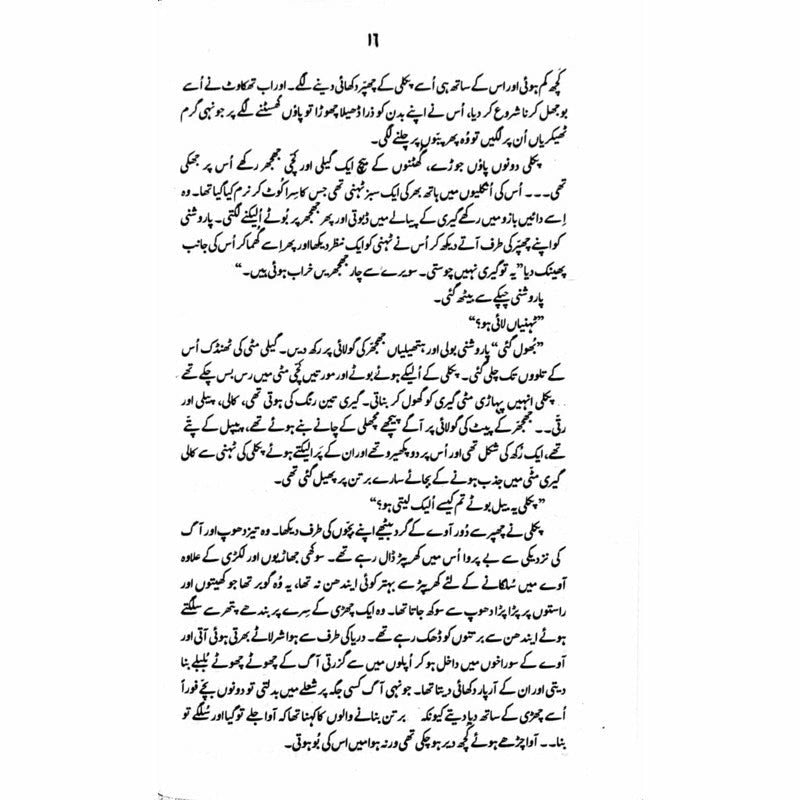 ۱٦
کچھ کم ہوئی اور اس کے ساتھ ہی اُسے پکلی کے چھپّر دکھائی دینے لگے۔ اور اب تھکاوٹ نے اُسے
بوجھل کرنا شروع کر دیا، اُس نے اپنے بدن کو ذرا ڈھیلا چھوڑا تو پاؤں گھسٹنے لگے پر جونہی گرم
ٹھیکریاں اُن پر لگیں تو وُہ پھر پبّوں پر چلنے لگی۔
پکلی دونوں پاؤں جوڑے، گھٹنوں کے بیچ ایک گیلی اور کچّی جھجھر رکھے اُس پر جھکی
تھی۔۔۔ اُس کی اُنگلیوں میں ہاتھ بھر کی ایک سبز ٹہنی تھی جس کا سِرا کُوٹ کر نرم کیا گیا تھا۔ وہ
اِسے دائیں بازو میں رکھے گیری کے پیالے میں ڈبوتی اور پھر جھجھر پر بُوٹے اُلیکنے لگتی۔ پاروشنی
کو اپنے چھپّر کی طرف آتے دیکھ کر اُس نے ٹہنی کو ایک نظر دیکھا اور پھر اِسے گُھما کر اُس کی جانب
پھینک دیا ”یہ تو گیری نہیں چوستی۔ سویرے سے چار جھجھریں خراب ہوئی ہیں۔“
پاروشنی چپکے سے بیٹھ گئی۔
”ٹہنیاں لائی ہو؟“
”بُھول گئی“ پاروشنی بولی اور ہتھیلیاں جھجھر کی گولائی پر رکھ دیں۔ گیلی مٹی کی ٹھنڈک اُس
کے تلووں تک چلی گئی۔ پکلی کے اُلیکے ہوئے بوٹے اور مورتیں کچّی مٹی میں رس بس چکے تھے
پکلی انہیں پہاڑی مٹی گیری کو گھول کر بناتی۔ گیری تین رنگ کی ہوتی تھی، کالی، پیلی اور
رتّی۔۔ جھجھر کے پیٹ کی گولائی پر آگے پیچھے مچھلی کے چانے بنے ہوئے تھے، پیپل کے پتّے
تھے، ایک رُکھ کی شکل تھی اور اُس پر دو پکھیرو تھے اور ان کے پَر الیکتے ہوئے پکلی کی ٹہنی سے کالی
گیری مٹّی میں جذب ہونے کے بجائے سارے برتن پر پھیل گئی تھی۔
”پکلی یہ بیل بوٹے تم کیسے اُلیک لیتی ہو؟“
پکلی نے چھپر سے دُور آوے کے گرد بیٹھے اپنے بچّوں کی طرف دیکھا۔ وہ تیز دھوپ اور آگ
کی نزدیکی سے بے پروا اُس میں کھرپڑ ڈال رہے تھے۔ سوکھی جھاڑیوں اور لکڑی کے علاوہ
آوے میں سُلگانے کے لئے کھرپڑ سے بہتر کوئی ایندھن نہ تھا، یہ وُہ گوبر تھا جو کھیتوں اور
راستوں پر پڑا پڑا دھوپ سے سوکھ جاتا تھا۔ وہ ایک چھڑی کے سِرے پر بندھے پتھر سے سلگتے
ہوئے ایندھن سے برتنوں کو ڈھک رہے تھے۔ دریا کی طرف سے ہوا شرلاٹے بھرتی ہوئی آتی اور
آوے کے سوراخوں میں داخل ہو کر اُپلوں میں سے گزرتی آگ کے چھوٹے چھوٹے بُلبلے بنا
دیتی اور ان کے آر پار دکھائی دیتا تھا۔ جونہی آگ کسی جگہ پر شعلے میں بدلتی تو دونوں بچّے فوراً
اُسے چھڑی کے ساتھ دبا دیتے کیونکہ برتن بنانے والوں کا کہنا تھا کہ آوا جلے تو گیا اور سُلگے تو
بنا۔۔ آوا چڑھے ہوئے کچھ دیر ہو چکی تھی ورنہ ہوا میں اس کی بُو ہوتی۔